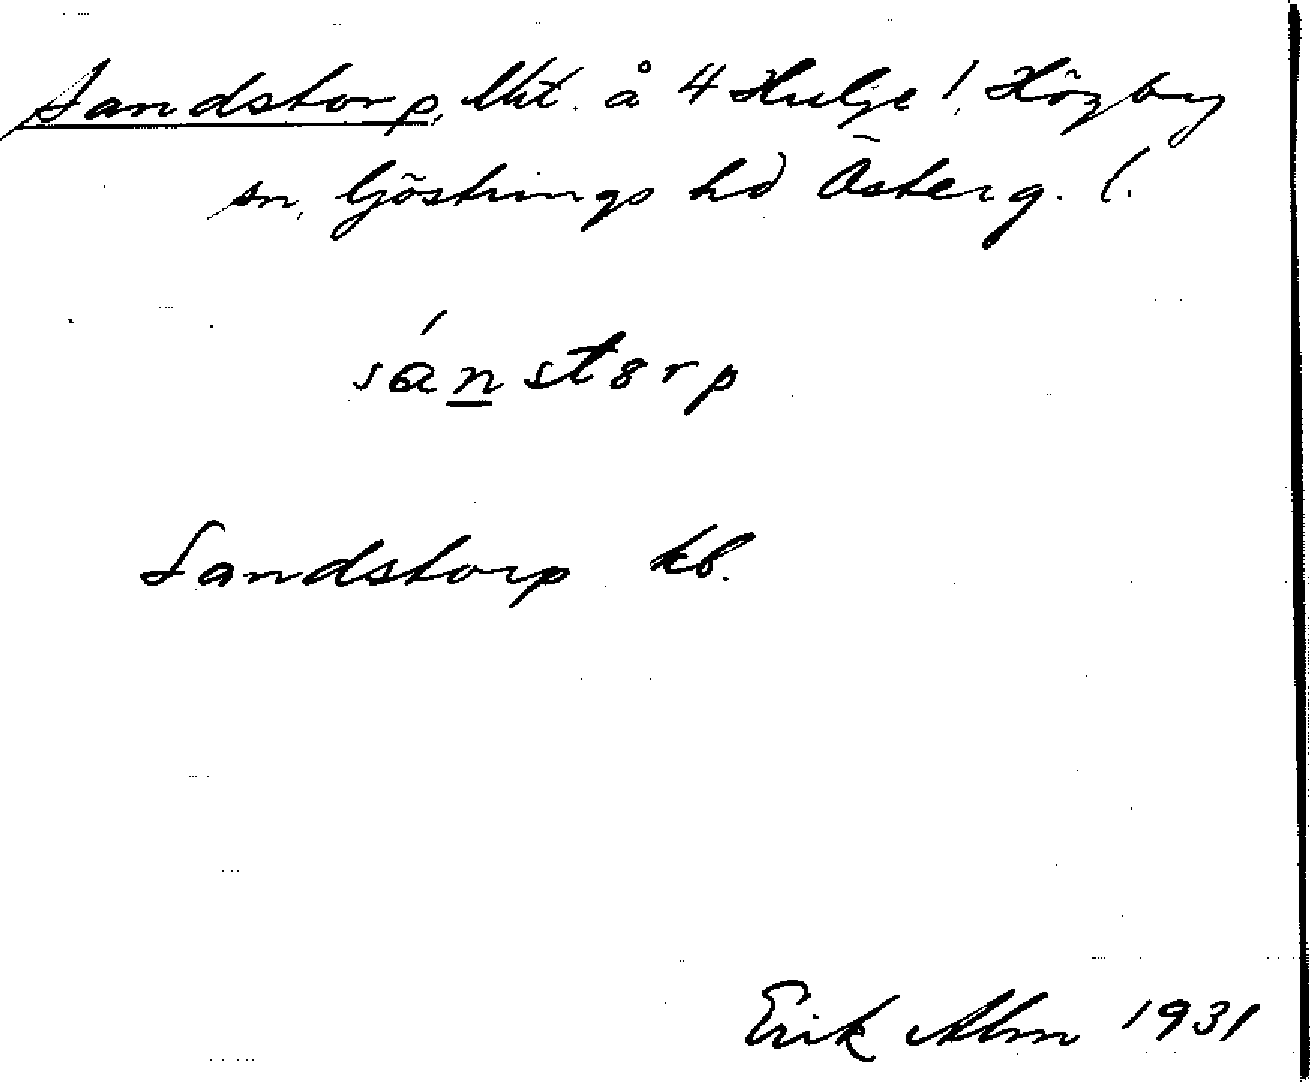 Sandstorp, lht. å 4 Hulje l. Högby
sn, Göstrings hd Österg. l.
sánstorp
Sandstorp kb.
Erik Alm 1931